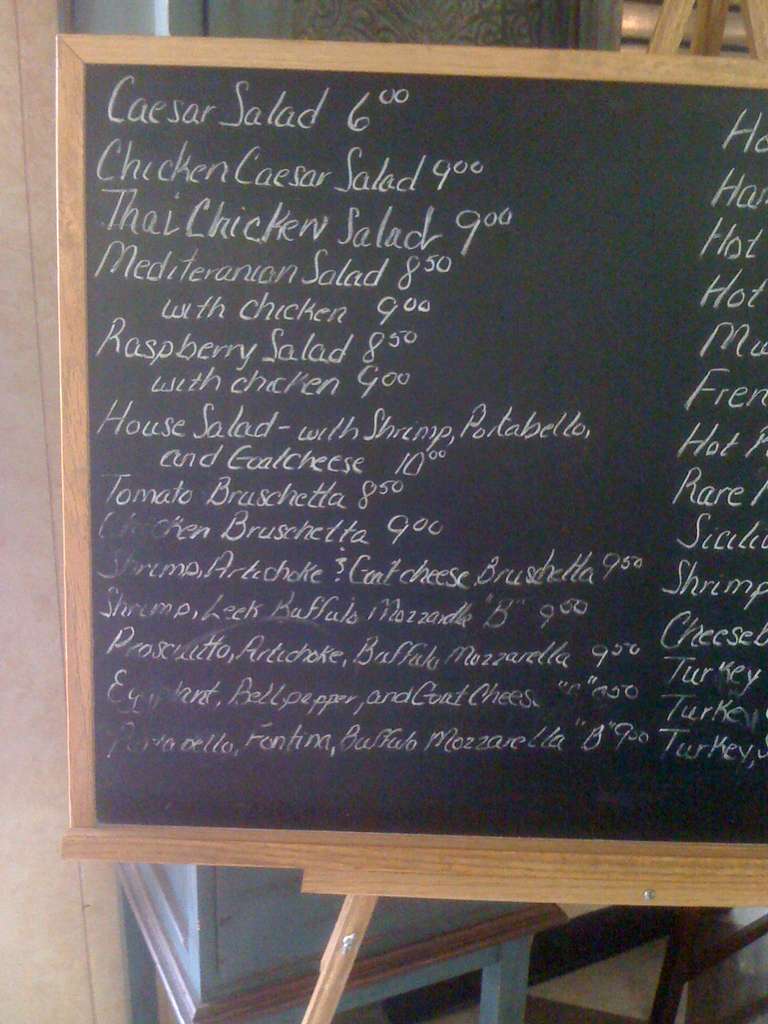 Caesar Salad 6.00
Chicken Caesar Salad 9.00
Thai Chicken Salad 9.00
Mediteranian Salad 8.50
with chicken 9.00
Raspberry Salad 8.50
with chicken 9.00
House Salad - with Shrimp, Portabello,
and Goatcheese 10.00
Tomato Bruschetta 8.50
Chicken Bruschetta 9.00
Shrimp, Artichoke & Goat cheese Bruschetta 9.50
Shrimp, Leek Buffulo Mozzarella "B" 9.50
Prosciutto, Artichoke, Buffalo Mozzarella 9.50
Eggplant, Bellpepper, and Goat Cheese 9.50
Portabello, Fontina, Buffulo Mozzarella "B" 9.00
Ho
Ha
Hot
Hot
Mu
Fren
Hot
Rare
Sicili
Shrimp
Cheeseb
Turkey
Turkey
Turkey,